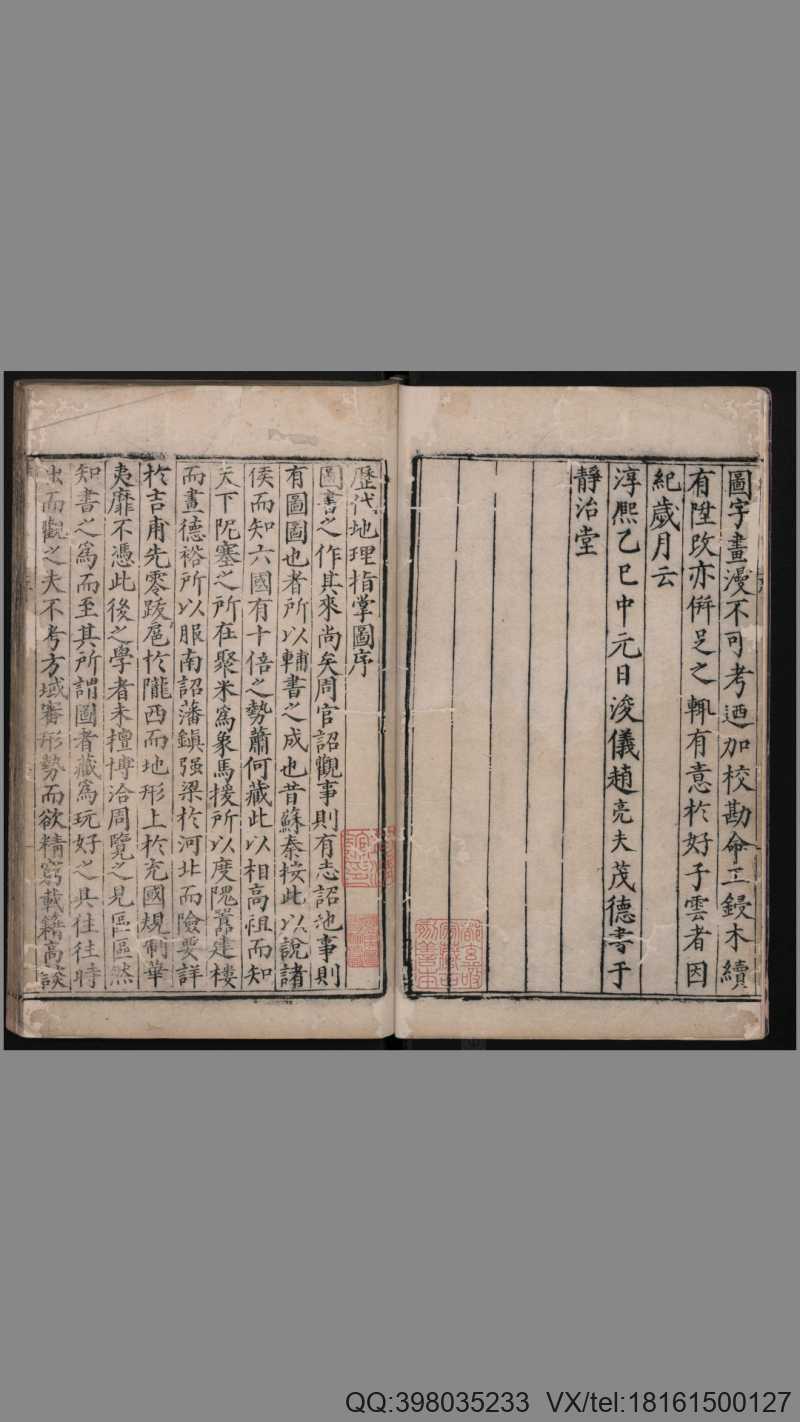 圖字畫漫不可考迺加校勘命工鋟木續
有陞改亦併足之輒有意於好子雲者因
紀歲月云
淳熙乙巳中元日浚儀趙亮夫茂德書于
靜治堂
歷代地理指掌圖序
圖書之作其來尚矣周官詔觀事則有志詔地事則
有圖圖也者所以輔書之成也昔蘇秦按此以說諸
侯而知六國有十倍之勢蕭何藏此以相高祖而知
天下阨塞之所在聚米為象馬援所以度隗囂建樓
而畫德裕所以服南詔藩鎮强梁於河北而險要詳
於吉甫先零跋扈於隴西而地形上於充國規制華
夷靡不憑此後之學者未擅博洽周覽之見區區然
知書之為而至其所謂圖者藏為玩好之具往往時
出而觀之夫不考方域審形勢而欲精窮載籍高談
QQ:398035233 VX/tel:18161500127